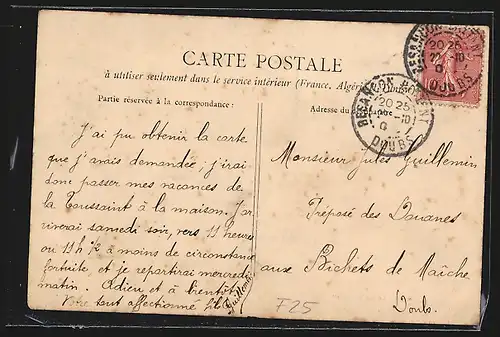 CARTE POSTALE
à utiliser seulement dans le service intérieur (France, Algérie
Partie réservée à la correspondance:
Adresse du
BESANÇON
20 25
22 -10
DOUBS
BESANÇON
20 25
-10
DOUBS
J'ai pu obtenir la carte
que j'avais demandée; j'irai
donc passer mes vacances de
la Toussaint à la maison. J'ar
riverai samedi soir, vers 11 heures
ou 11h ½ à moins de circonstance
fortuite, et je repartirai mercredi
matin. Adieu et à bientôt
Votre tout affectionné
Guillemin
Monsieur Jules Guillemin
Préposé des Douanes
aux Bréchets de Maîche
Doubs.
F25